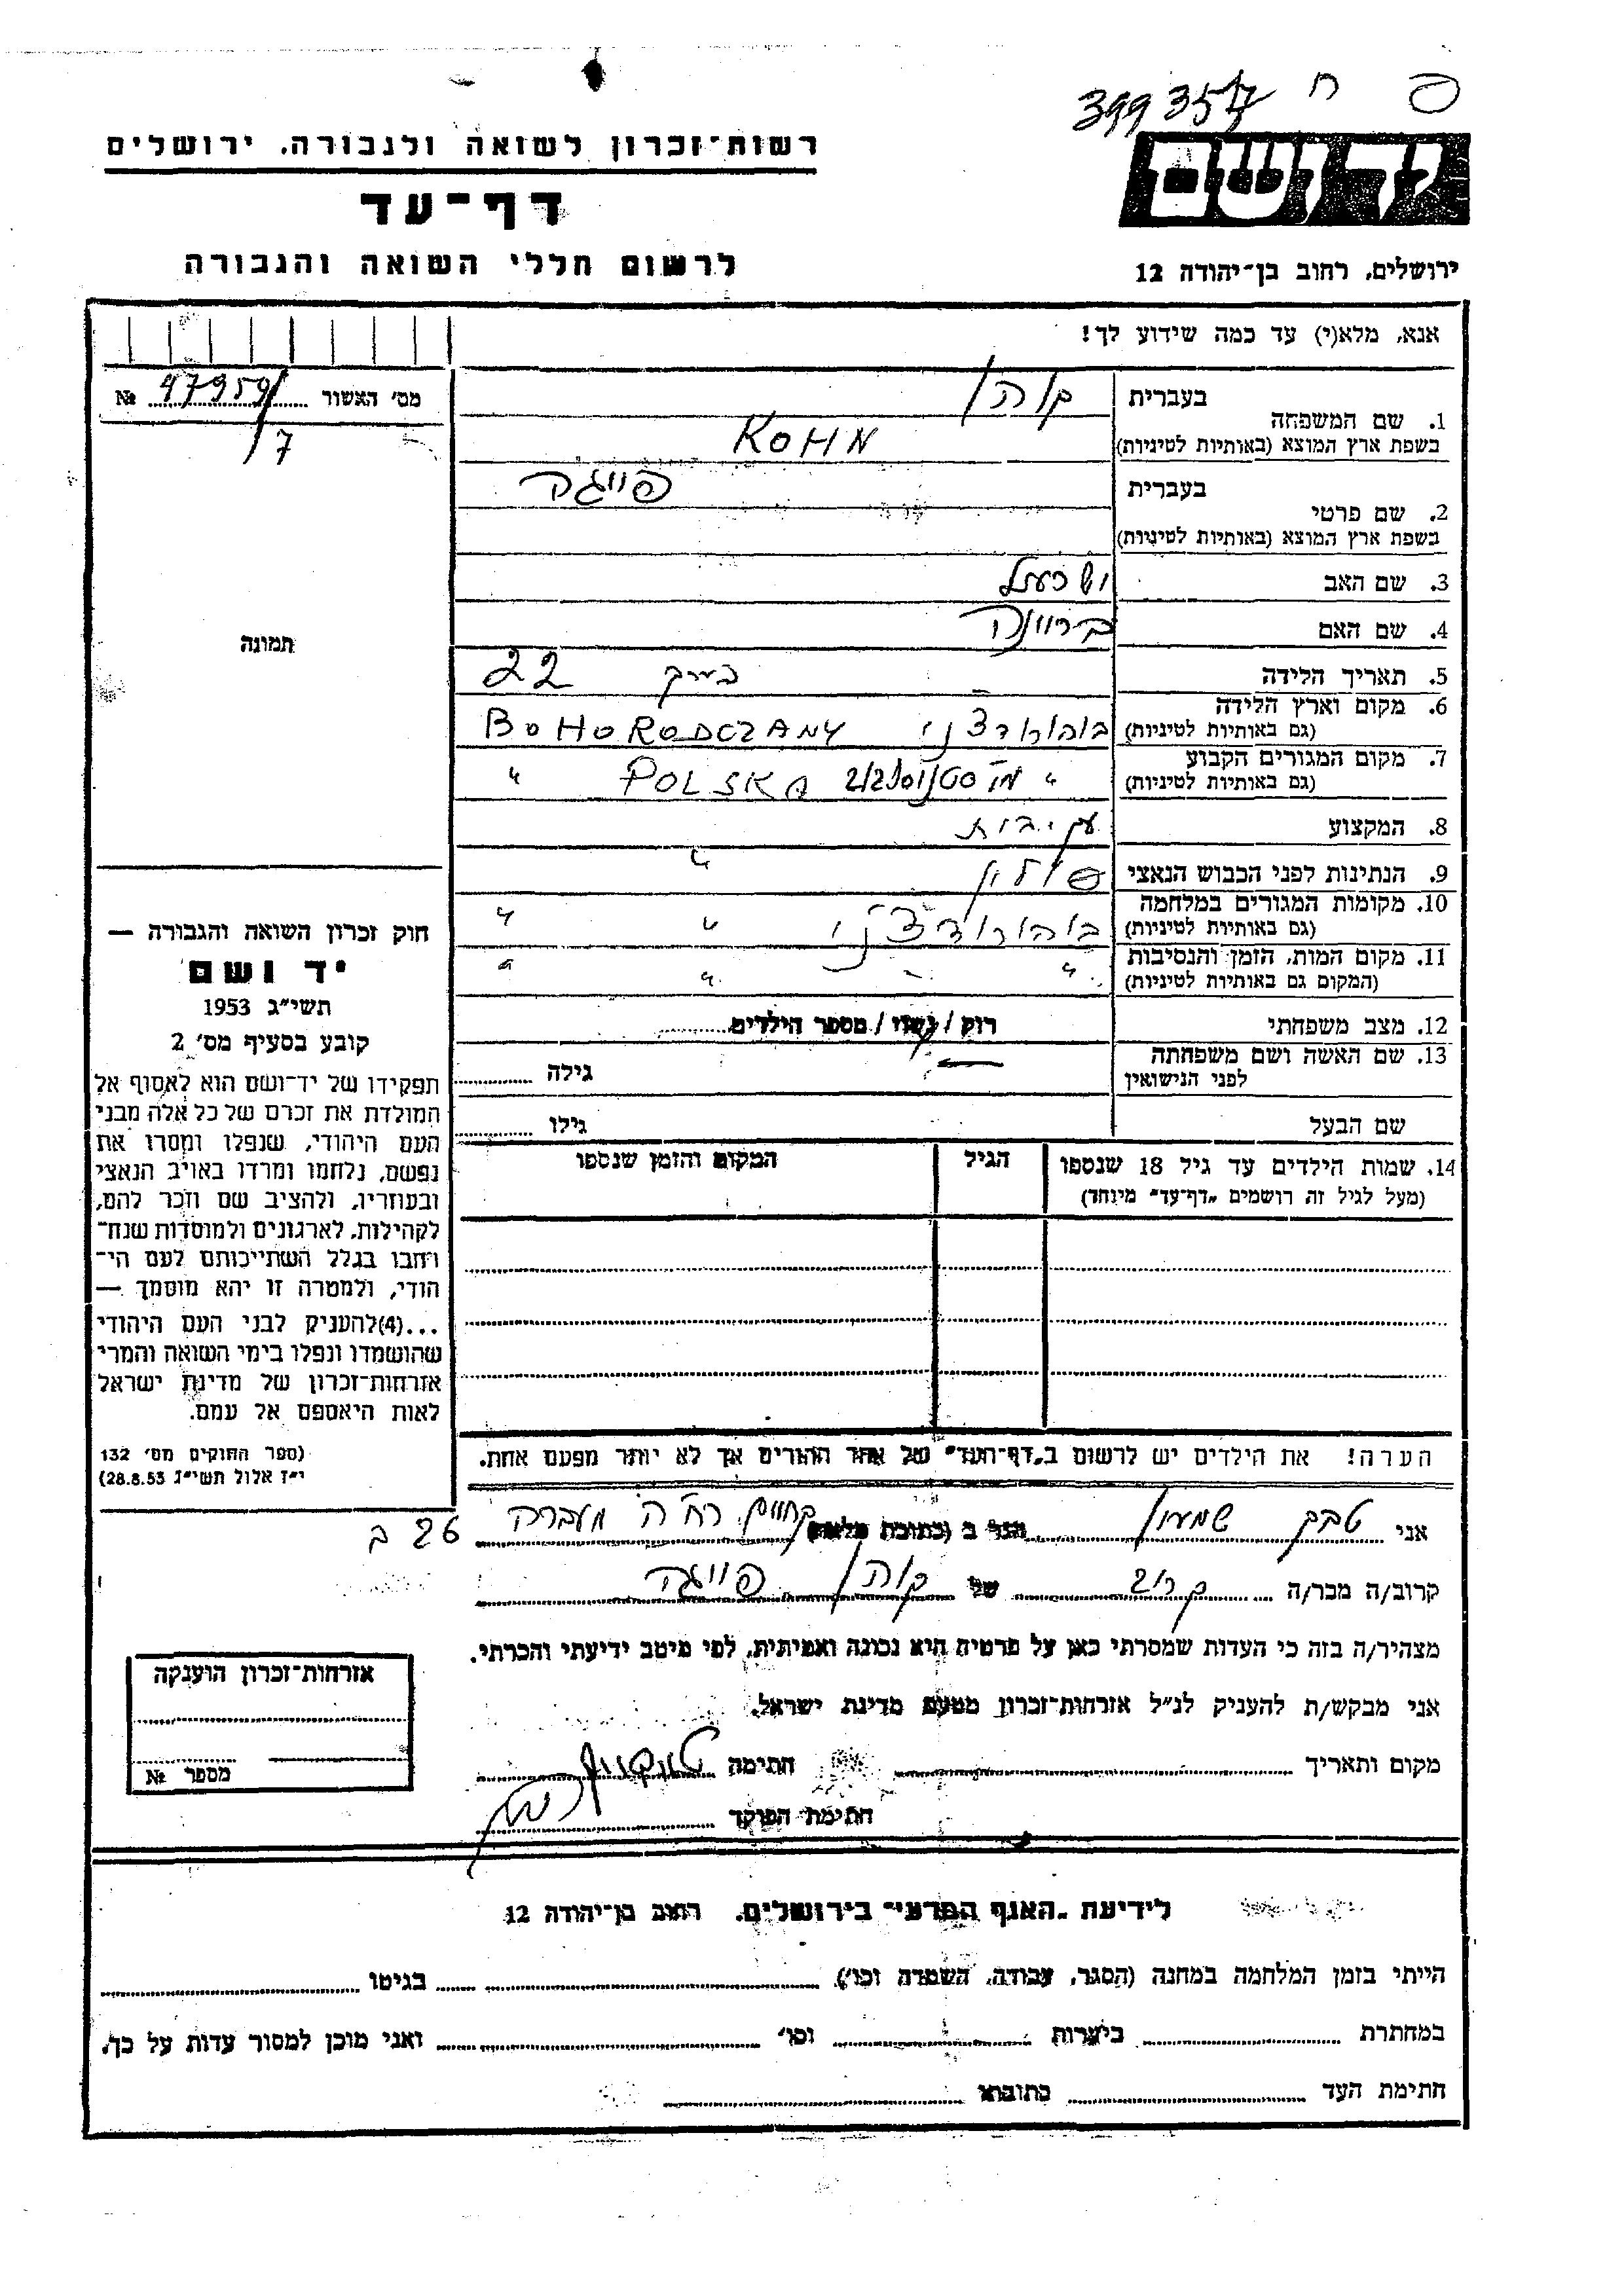 399354 ח פ
רשות־זכרון לשואה ולגבורה, ירושלים
יד ושם
דף־עד
לרשום חללי השואה והגבורה
ירושלים, רחוב בן־יהודה 12
אנא, מלא(י) עד כמה שידוע לך!
מס' האשור 47959 №
7
1. שם המשפחה
בעברית קוהן
בשפת ארץ המוצא (באותיות לטיניות) KOHN
2. שם פרטי
בעברית פייגה
בשפת ארץ המוצא (באותיות לטיניות)
3. שם האב
4. שם האם
5. תאריך הלידה 22
6. מקום וארץ הלידה
(גם באותיות לטיניות) בוהורודצ'ני BOHORODCZANY
7. מקום המגורים הקבוע
(גם באותיות לטיניות) " POLSKA "
8. המקצוע
9. הנתינות לפני הכבוש הנאצי פולין "
10. מקומות המגורים במלחמה
(גם באותיות לטיניות) בוהורודצ'ני " "
11. מקום המות, הזמן והנסיבות
(המקום גם באותיות לטיניות) " " "
12. מצב משפחתי רוק / נשוי / מספר הילדים
13. שם האשה ושם משפחתה
לפני הנישואין גילה
שם הבעל גילו
14. שמות הילדים עד גיל 18 שנספו הגיל המקום והזמן שנספו
(מעל לגיל זה רושמים „דף־עד" מיוחד)
הערה! את הילדים יש לרשום ב„דף־העד" של אחד ההורים אך לא יותר מפעם אחת.
תמונה
חוק זכרון השואה והגבורה —
יד ושם
תשי"ג 1953
קובע בסעיף מס' 2
תפקידו של יד־ושם הוא לאסוף אל
המולדת את זכרם של כל אלה מבני
העם היהודי, שנפלו ומסרו את
נפשם, נלחמו ומרדו באויב הנאצי
ובעוזריו, ולהציב שם וזכר להם,
לקהילות, לארגונים ולמוסדות שנח־
רחבו בגלל השתייכותם לעם הי־
הודי, ולמטרה זו יהא מוסמך —
...(4)להעניק לבני העם היהודי
שהושמדו ונפלו בימי השואה והמרי
אזרחות־זכרון של מדינת ישראל
לאות היאספם אל עמם.
(ספר החוקים מס' 132
י"ז אלול תשי"ג 28.8.53)
אני טבק שמעון הגר ב (כתובת מלאה) רח' ה מעברה 26 ב
קרוב/ה מכר/ה קרוב של קוהן פייגה
מצהיר/ה בזה כי העדות שמסרתי כאן על פרטיה היא נכונה ואמיתית, לפי מיטב ידיעתי והכרתי.
אני מבקש/ת להעניק לנ"ל אזרחות־זכרון מטעם מדינת ישראל.
מקום ותאריך חתימה
חתימת הפוקד
אזרחות־זכרון הוענקה
מספר №
לידיעת „האגף המדעי" בירושלים, רחוב בן־יהודה 12
הייתי בזמן המלחמה במחנה (הסגר, עבודה, השמדה וכו') בגיטו
במחתרת ביערות וכו' ואני מוכן למסור עדות על כך.
חתימת העד כתובתו